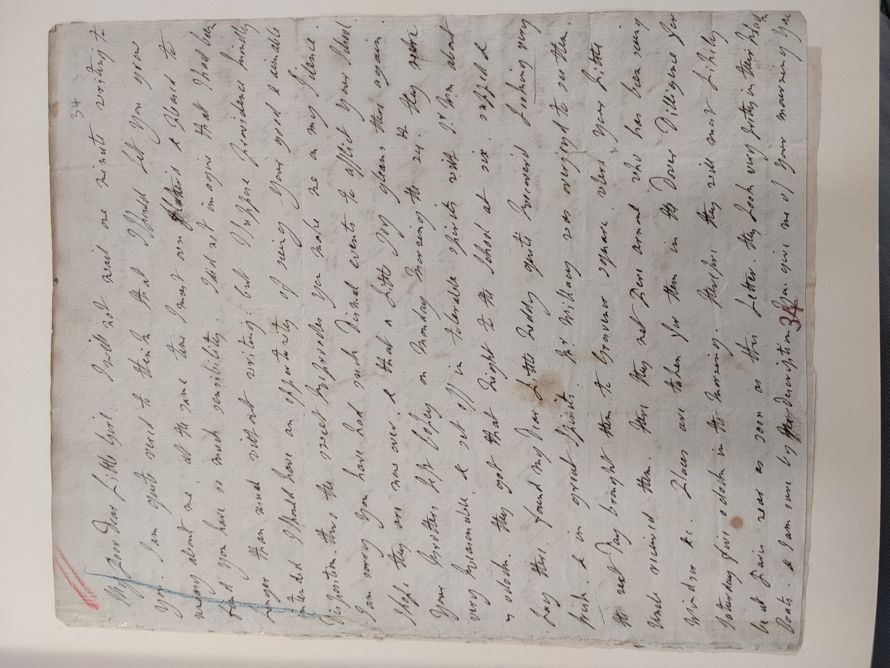 34
My poor Dear Little Girl. I will not wait one minute writing to
You. I am quite vexed to think that I should let You grow
uneasy about me. at the same time I must own flattered & pleased to
find you have so much sensibility. I did not imagine that I had been
longer than usual without writing: but I suppose Providence kindly
intended I should have an opportunity of seeing Your good & amiable
Disposition. thro the sweet reproaches You make me on my silence.
I am sorry You have had such Dismal events to afflict Your School.
I hope they are now over. & that a little Joy gleams there again.
Your Brothers left on Monday Morning the 24. they were
very reasonable & set off in tolerable spirits with about
o'clock. they got that night to the School at six. supped &
Lay there. found my Dear little Neddy quite Recovered Looking very
fresh. & in great spirits. Mr was overjoyed to see them.
the next Day brought them to Grosvenor Square where Your Little
Uncle received them. there they met Dear who has been seeing
Windsor &c. Places are taken for them in the Dover Dilligence for
Saturday five o'clock in the Morning. therefore they will most likely
be at Paris near as soon as this Letter. they Look very pretty in their
Boots. & I am sure by the Description You give me of Your mourning You
34